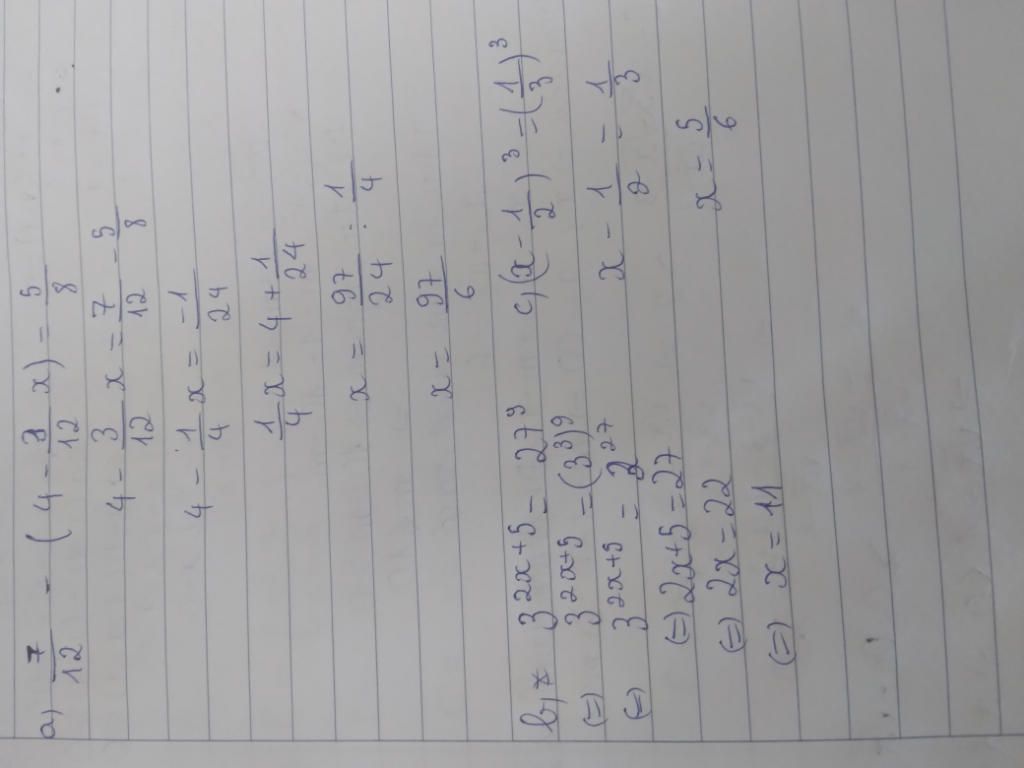 a, 7/12 - (4 - 3/12 x) = 5/8
4 - 3/12 x = 7/12 - 5/8
4 - 1/4 x = -1/24
1/4 x = 4 + 1/24
x = 97/24 : 1/4
x = 97/6
b, 3^{2x+5} = 27^9
(=) 3^{2x+5} = (3^3)^9
(=) 3^{2x+5} = 3^{27}
(=) 2x+5 = 27
(=) 2x = 22
(=) x = 11
c, (x - 1/2)^3 = (1/3)^3
x - 1/2 = 1/3
x = 5/6